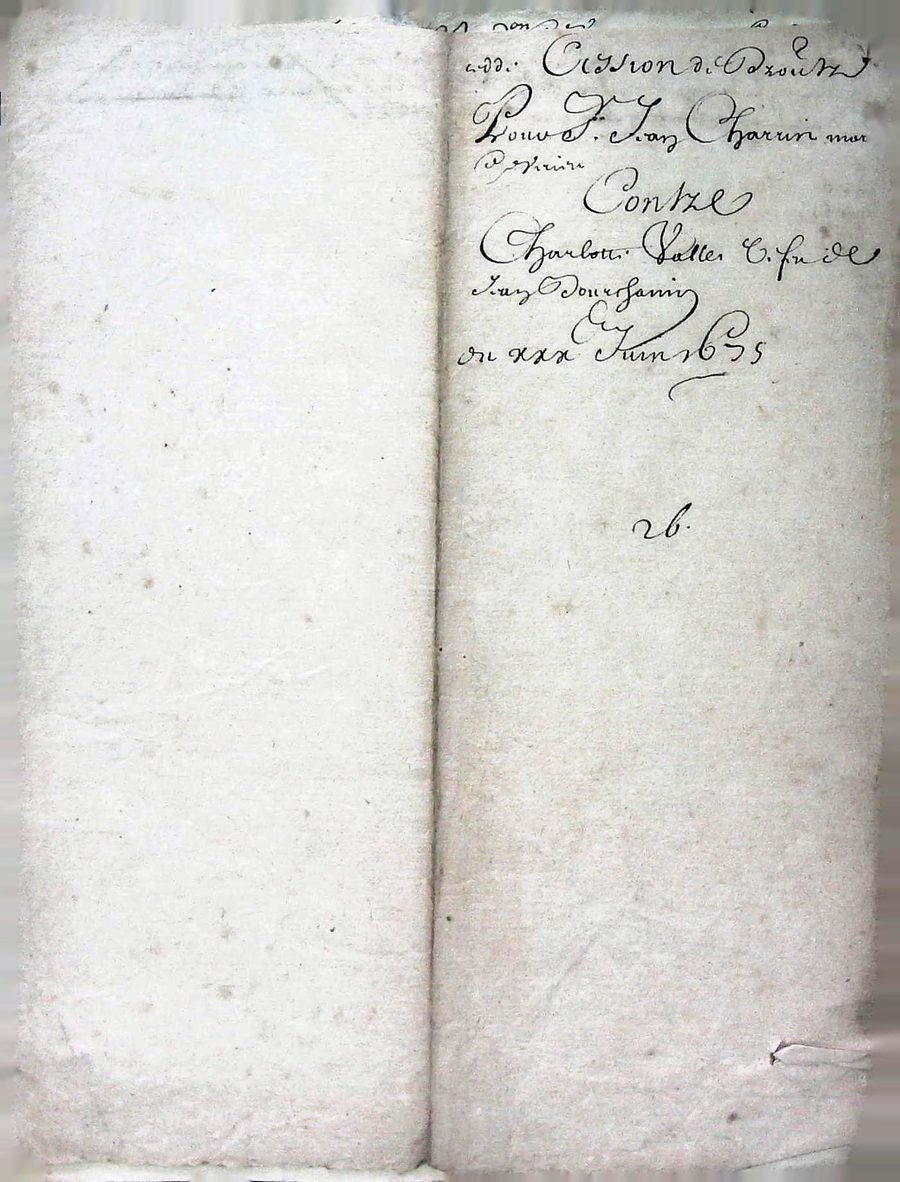 Cession de Droutz
Pour Sr. Jean Charrin mar
Contre
Charlotte Valler V. fu de
Jean Bourchanin
du xxx Juin 1675
26.